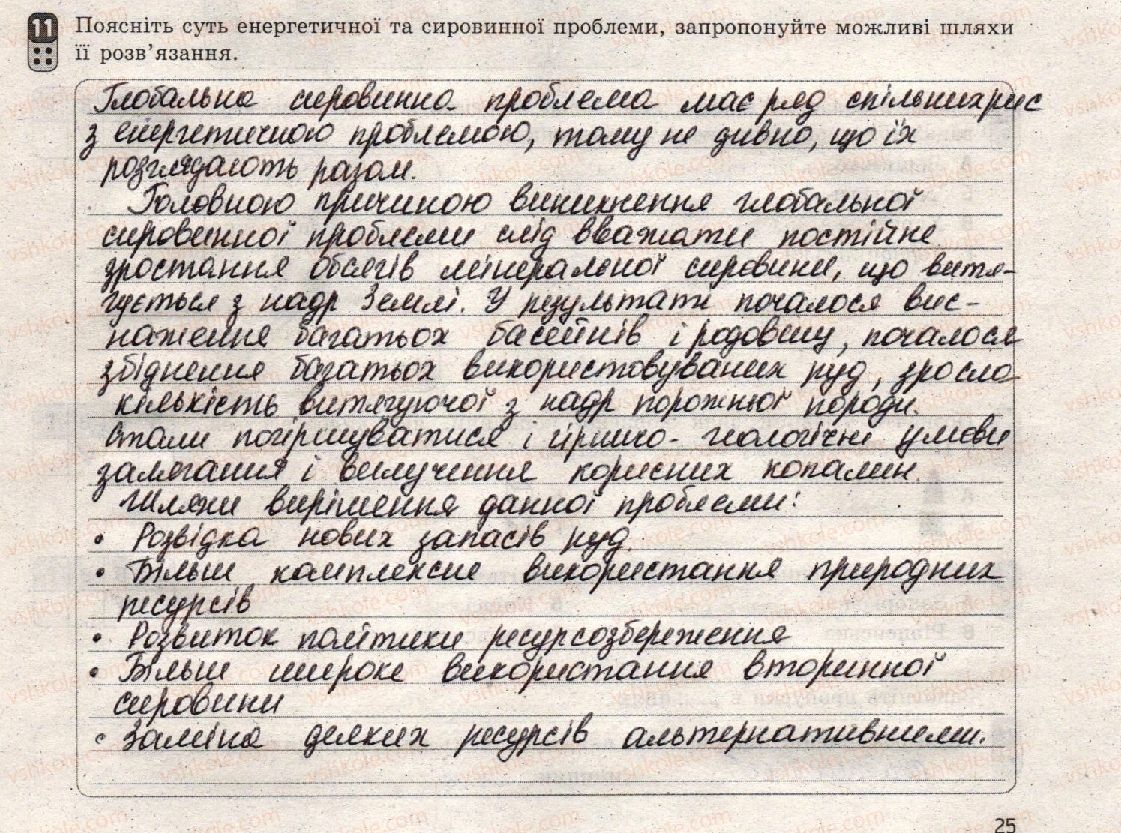 11 Поясніть суть енергетичної та сировинної проблеми, запропонуйте можливі шляхи
її розв'язання.
Глобальна сировинна проблема має ряд спільних рис
з енергетичною проблемою, тому не дивно, що їх
розглядають разом.
Головною причиною виникнення глобальної
сировинної проблеми слід вважати постійне
зростання обсягів мінеральної сировини, що витя-
гується з надр Землі. У результаті почалося вис-
наження багатьох басейнів і родовищ, почалося
збіднення багатьох використовуваних руд, зросла
кількість витягуючої з надр порожньої породи.
Стали погіршуватися і гірничо-геологічні умови
залягання і вилучення корисних копалин.
Шляхи вирішення данної проблеми:
• Розвідка нових запасів руд.
• Більш комплексне використання природних
ресурсів
• Розвиток політики ресурсозбереження
• Більш широке використання вторинної
сировини
• Заміна деяких ресурсів альтернативними.
25